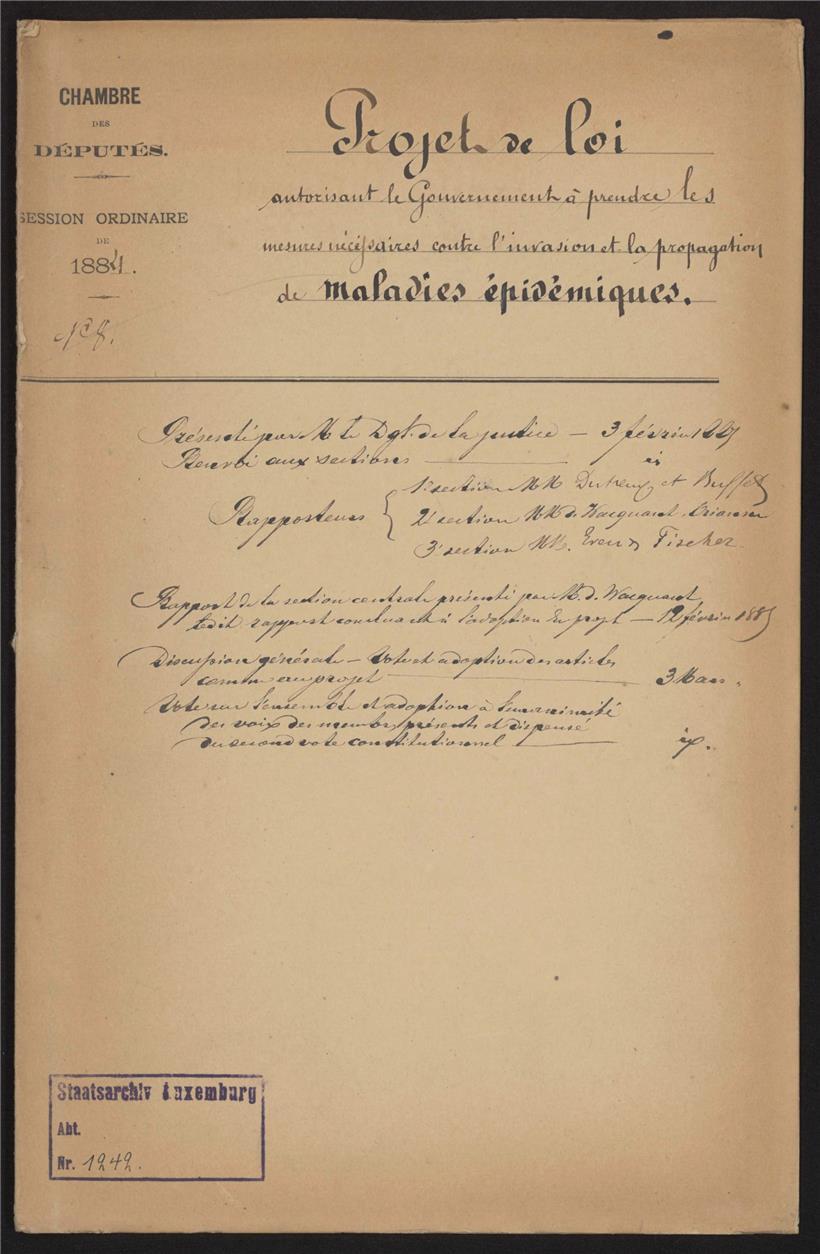 CHAMBRE
DES
DÉPUTÉS.
SESSION ORDINAIRE
DE
1884.
N° 8.
Projet de loi
autorisant le Gouvernement à prendre les
mesures nécessaires contre l'invasion et la propagation
de maladies épidémiques.
Présenté par M. le Dgt. de la justice — 3 février 1885
Renvoi aux sections — id
Rapporteurs
1e section MM. Dutreux et Buffet
2e section MM. de Wacquant
3e section MM. Fischer
Rapport de la section centrale présenté par M. d. Wacquant,
ledit rapport concluant à l'adoption du projet — 12 février 1885
Discussion générale — Vote et adoption des articles
comme au projet — 3 Mars.
Vote sur l'ensemble et adoption à l'unanimité
des voix des membres présents et dispense
du second vote constitutionnel —
Staatsarchiv Luxemburg
Abt.
Nr. 1242.